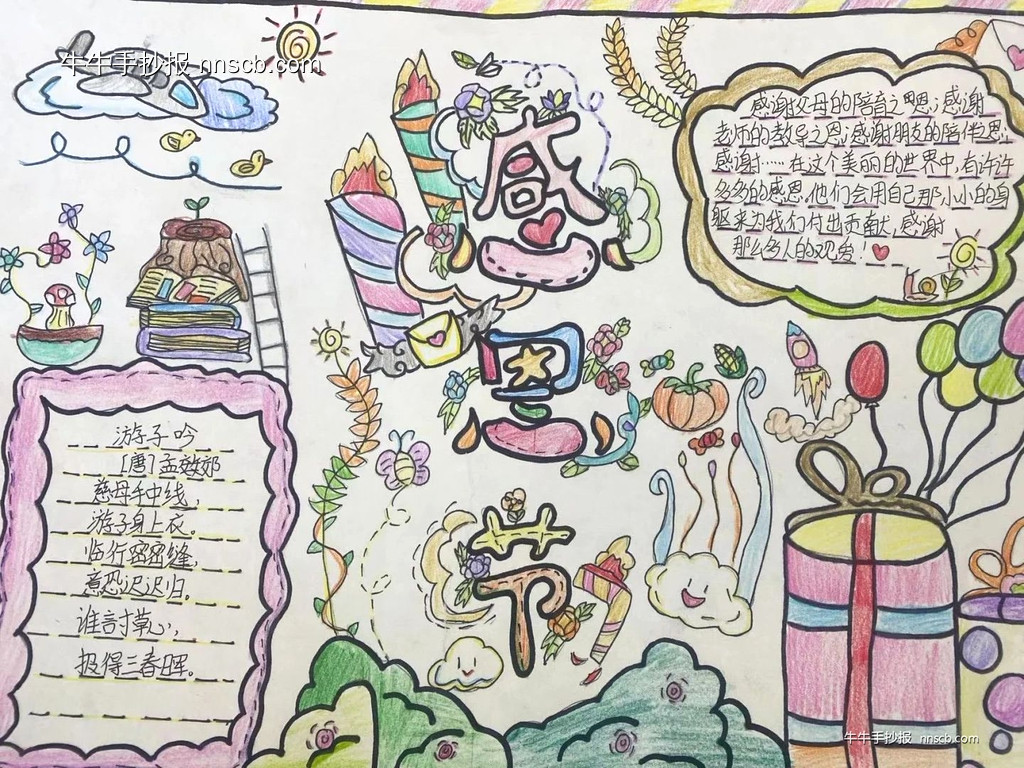 牛牛手抄报 nnscb.com
感恩节
感谢父母的陪育之恩；感谢
老师的教导之恩；感谢朋友的陪伴之恩；
感谢……在这个美丽的世界中，有许许
多多的感恩，他们会用自己那小小的身
躯来为我们付出贡献，感谢
那么多人的观看！
游子吟
[唐]孟郊
慈母手中线，
游子身上衣。
临行密密缝，
意恐迟迟归。
谁言寸草心，
报得三春晖。
牛牛手抄报 nnscb.com